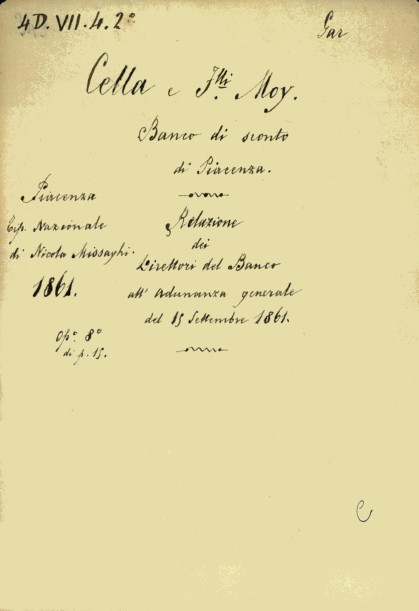 4D.VII.4.2°
Gar
Cella e F.lli Moy.
Banco di sconto
di Piacenza.
Piacenza
Tip. Nazionale
di Nicola Missaghi.
1861.
op.° 8°
di p. 15.
Relazione
dei
Direttori del Banco
all' Adunanza generale
del 15 Settembre 1861.
C